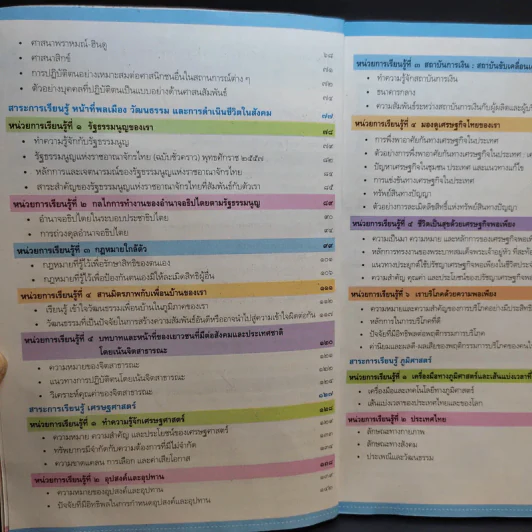 • ศาสนาพราหมณ์-ฮินดู
• ศาสนาสิกข์
• การปฏิบัติตนอย่างเหมาะสมต่อศาสนิกชนอื่นในสถานการณ์ต่าง ๆ
• ตัวอย่างบุคคลที่ปฏิบัติตนเป็นแบบอย่างด้านศาสนสัมพันธ์
สาระการเรียนรู้ หน้าที่พลเมือง วัฒนธรรม และการดำเนินชีวิตในสังคม ๗๗
หน่วยการเรียนรู้ที่ ๑ รัฐธรรมนูญของเรา ๗๘
• ทำความรู้จักกับรัฐธรรมนูญ
• รัฐธรรมนูญแห่งราชอาณาจักรไทย (ฉบับชั่วคราว) พุทธศักราช ๒๕๕๗
• หลักการและเจตนารมณ์ของรัฐธรรมนูญแห่งราชอาณาจักรไทย
• สาระสำคัญของรัฐธรรมนูญแห่งราชอาณาจักรไทยที่สัมพันธ์กับตัวเรา
หน่วยการเรียนรู้ที่ ๒ กลไกการทำงานของอำนาจอธิปไตยตามรัฐธรรมนูญ
• อำนาจอธิปไตยในระบอบประชาธิปไตย
• การถ่วงดุลอำนาจอธิปไตย
หน่วยการเรียนรู้ที่ ๓ กฎหมายใกล้ตัว ๙๙
• กฎหมายที่รู้ไว้เพื่อรักษาสิทธิของตนเอง
• กฎหมายที่รู้ไว้เพื่อป้องกันตนเองมิให้ละเมิดสิทธิผู้อื่น
หน่วยการเรียนรู้ที่ ๔ สานมิตรภาพกับเพื่อนบ้านของเรา ๑๑๑
• เรียนรู้ เข้าใจวัฒนธรรมเพื่อนบ้านในภูมิภาคของเรา
• วัฒนธรรมที่เป็นปัจจัยในการสร้างความสัมพันธ์อันดีหรืออาจนำไปสู่ความเข้าใจผิดต่อกัน
หน่วยการเรียนรู้ที่ ๕ บทบาทและหน้าที่ของเยาวชนที่มีต่อสังคมและประเทศชาติ
โดยเน้นจิตสาธารณะ
• ความหมายของจิตสาธารณะ
• แนวทางการปฏิบัติตนโดยเน้นจิตสาธารณะ
• วิเคราะห์คุณค่าของจิตสาธารณะ
สาระการเรียนรู้ เศรษฐศาสตร์ ๑๒๗
หน่วยการเรียนรู้ที่ ๑ ทำความรู้จักเศรษฐศาสตร์
• ความหมาย ความสำคัญ และประโยชน์ของเศรษฐศาสตร์
• ทรัพยากรมีจำกัดกับความต้องการที่มีไม่จำกัด
• ความขาดแคลน การเลือก และค่าเสียโอกาส
หน่วยการเรียนรู้ที่ ๒ อุปสงค์และอุปทาน
• ความหมายของอุปสงค์และอุปทาน
• ปัจจัยที่มีอิทธิพลในการกำหนดอุปสงค์และอุปทาน
หน่วยการเรียนรู้ที่ ๓ สถาบันการเงิน : สถาบันขับเคลื่อน
• ทำความรู้จักสถาบันการเงิน
• ธนาคารกลาง
• ความสัมพันธ์ระหว่างสถาบันการเงินกับผู้ผลิตและ
หน่วยการเรียนรู้ที่ ๔ มองดูเศรษฐกิจไทยของเรา
• การพึ่งพาอาศัยกันทางเศรษฐกิจในประเทศ
• ตัวอย่างการพึ่งพาอาศัยกันทางเศรษฐกิจในประเทศ :
• ปัญหาเศรษฐกิจในชุมชน ประเทศ และแนวทางแก้ไข
• การแข่งขันทางเศรษฐกิจในประเทศ
• ทรัพย์สินทางปัญญา
• ตัวอย่างการละเมิดลิขสิทธิ์ทางทรัพย์สินทางปัญญา
หน่วยการเรียนรู้ที่ ๕ ชีวิตเป็นสุขด้วยเศรษฐกิจพอเพียง
• ความเป็นมา ความหมาย และหลักการของเศรษฐกิจ
• หลักการทรงงานของพระบาทสมเด็จพระเจ้าอยู่หัว
• แนวทางประยุกต์ใช้ปรัชญาเศรษฐกิจพอเพียงใน
• ความสำคัญ คุณค่า และประโยชน์ของปรัชญา
หน่วยการเรียนรู้ที่ ๖ เราบริโภคด้วยความพอเพียง
• ความหมายและความสำคัญของการบริโภคอย่างมี
• หลักการในการบริโภคที่ดี
• ปัจจัยที่มีอิทธิพลต่อพฤติกรรมการบริโภค
• ค่านิยมและผลดี-ผลเสียของพฤติกรรมการบริโภค
สาระการเรียนรู้ ภูมิศาสตร์
หน่วยการเรียนรู้ที่ ๑ เครื่องมือทางภูมิศาสตร์และเส้นแบ่งเวลา
• เครื่องมือและเทคโนโลยีทางภูมิศาสตร์
• เส้นแบ่งเวลาของประเทศไทยและของโลก
หน่วยการเรียนรู้ที่ ๒ ประเทศไทย
• ลักษณะทางกายภาพ
• ลักษณะทางสังคม
• ประเพณีและวัฒนธรรม